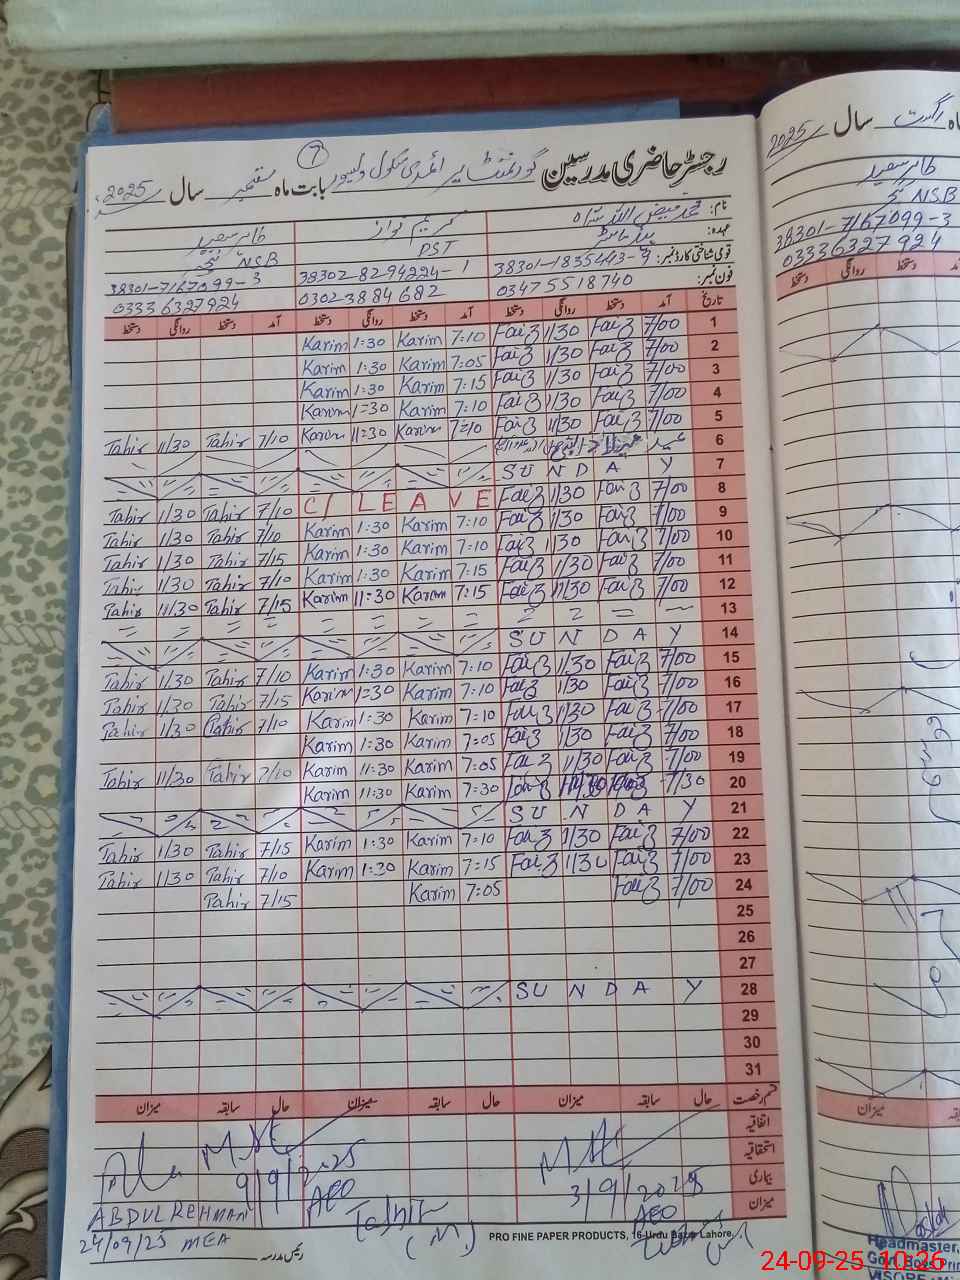 رجسٹر حاضری مدرسین گورنمنٹ پرائمری سکول بابت ماہ ستمبر سال 2025
7
نام: محمد فیض اللہ شاہ کریم نواز طاہر سعید
عہدہ: ہیڈ ماسٹر PST NSB
قومی شناختی کارڈ نمبر: 38301-1835443-9 38302-8294224-1 38301-7167099-3
فون نمبر: 03475518740 03023884682 03336327924
تاریخ آمد دستخط روانگی دستخط آمد دستخط روانگی دستخط آمد دستخط روانگی دستخط
1 7/00 Faiz 1/30 Faiz 7:10 Karim 1:30 Karim
2 7/00 Faiz 1/30 Faiz 7:05 Karim 1:30 Karim
3 7/00 Faiz 1/30 Faiz 7:15 Karim 1:30 Karim
4 7/00 Faiz 1/30 Faiz 7:10 Karim 1:30 Karim
5 7/00 Faiz 11/30 Faiz 7:10 Karim 11:30 Karim 7/10 Tahir 11/30 Tahir
6 عید میلاد النبی
7 SUNDAY
8 7/00 Faiz 1/30 Faiz C/ LEAVE 7/10 Tahir 1/30 Tahir
9 7/00 Faiz 1/30 Faiz 7:10 Karim 1:30 Karim 7/10 Tahir 1/30 Tahir
10 7/00 Faiz 1/30 Faiz 7:10 Karim 1:30 Karim 7/15 Tahir 1/30 Tahir
11 7/00 Faiz 1/30 Faiz 7:15 Karim 1:30 Karim 7/10 Tahir 1/30 Tahir
12 7/00 Faiz 11/30 Faiz 7:15 Karim 11:30 Karim 7/15 Tahir 11/30 Tahir
13
14 SUNDAY
15 7/00 Faiz 1/30 Faiz 7:10 Karim 1:30 Karim 7/10 Tahir 1/30 Tahir
16 7/00 Faiz 1/30 Faiz 7:10 Karim 1:30 Karim 7/15 Tahir 1/30 Tahir
17 7/00 Faiz 1/30 Faiz 7:10 Karim 1:30 Karim 7/10 Tahir 1/30 Tahir
18 7/00 Faiz 1/30 Faiz 7:05 Karim 1:30 Karim
19 7/00 Faiz 11/30 Faiz 7:05 Karim 11:30 Karim 7/10 Tahir 11/30 Tahir
20 7/30 7:30 Karim 11:30 Karim
21 SUNDAY
22 7/00 Faiz 1/30 Faiz 7:10 Karim 1:30 Karim 7/15 Tahir 1/30 Tahir
23 7/00 Faiz 1/30 Faiz 7:15 Karim 1:30 Karim 7/10 Tahir 1/30 Tahir
24 7/00 Faiz 7:05 Karim 7/15 Tahir
25
26
27
28 SUNDAY
29
30
31
قسم رخصت حال سابقہ میزان حال سابقہ میزان حال سابقہ میزان
اتفاقیہ
استحقاقیہ
بیماری
میزان
3/9/2025
AEO
9/9/2025
AEO
ABDUL REHMAN
24/09/25 MEA
رئیس مدرسہ
PRO FINE PAPER PRODUCTS, 16-Urdu Bazar Lahore.
ماہ اگست سال 2025
طاہر سعید
NSB
38301-7167099-3
03336327924
روانگی دستخط
میزان
Headmaster,
Govt. Boys Prim
24-09-25 10:26